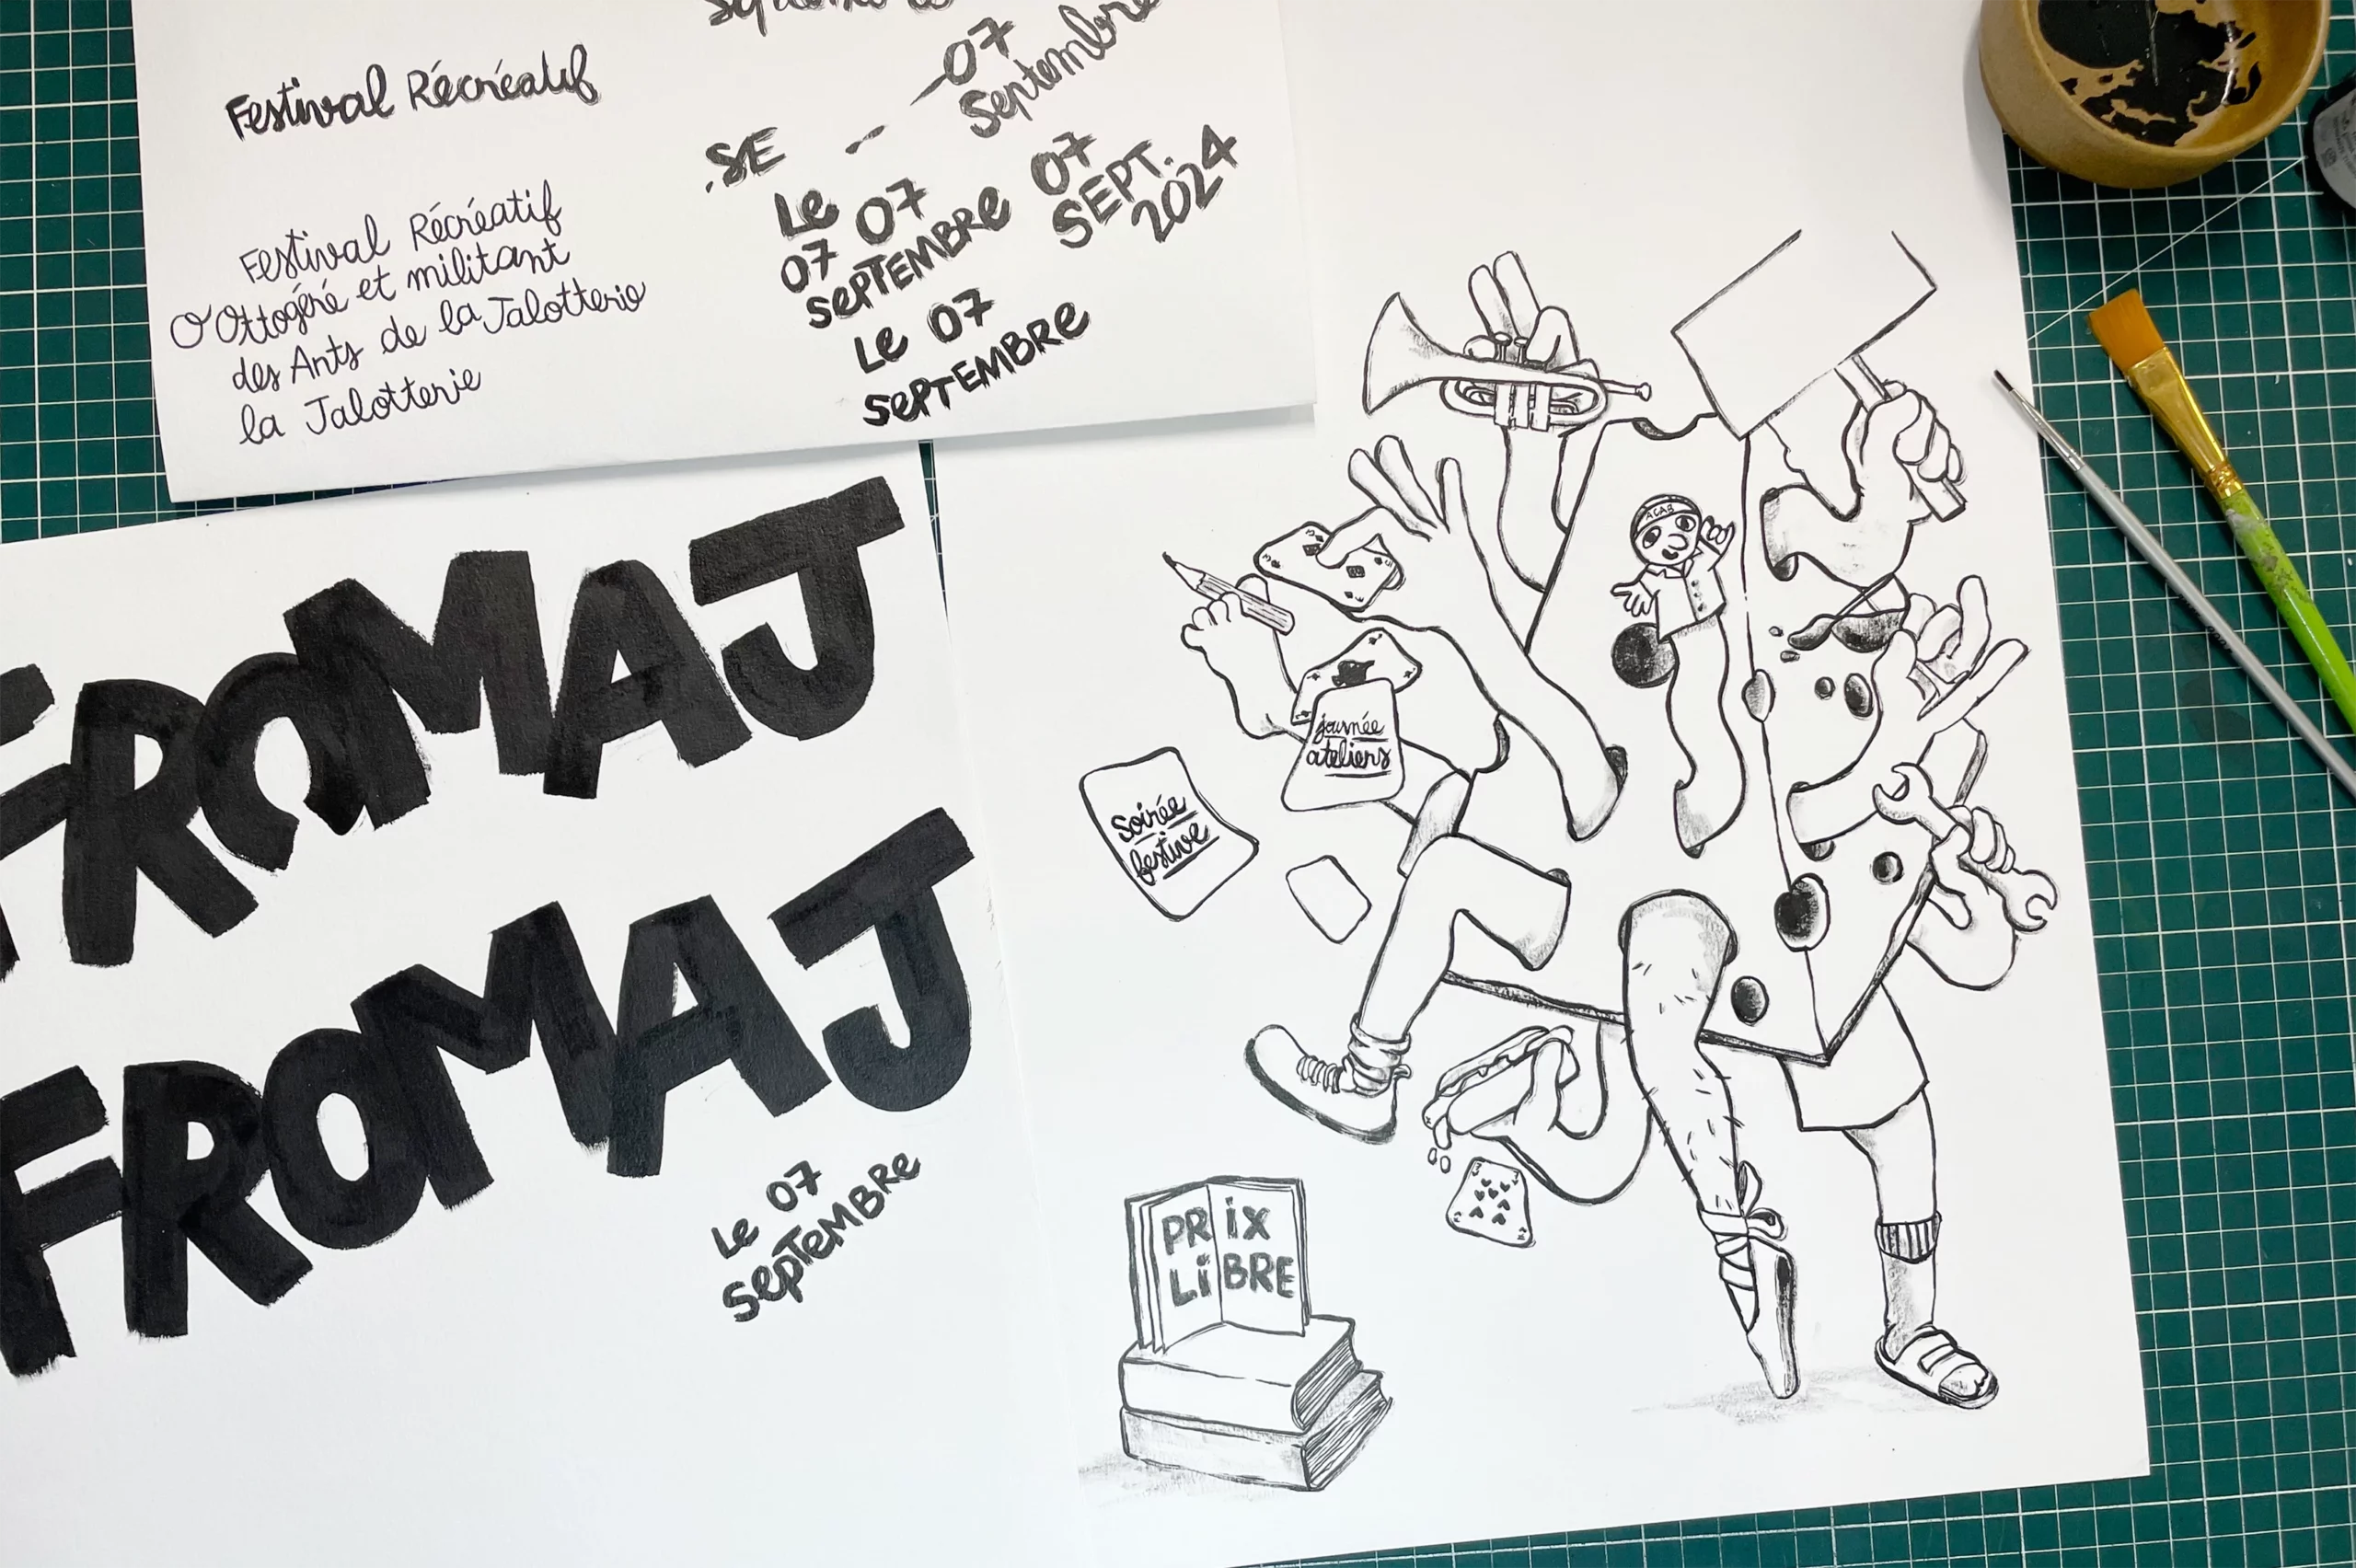 Festival Récréatif
Festival Récréatif
O Ottogéré et militant
des Arts de la Jalotterie
la Jalotterie
Septembre
07
Septembre
SE
Le
07
07
SEPTEMBRE
07
SEPT.
2024
Le 07
SEPTEMBRE
FROMAJ
FROMAJ
Le 07
SEPTEMBRE
ACAB
journée
ateliers
soirée
festive
PRIX
LIBRE